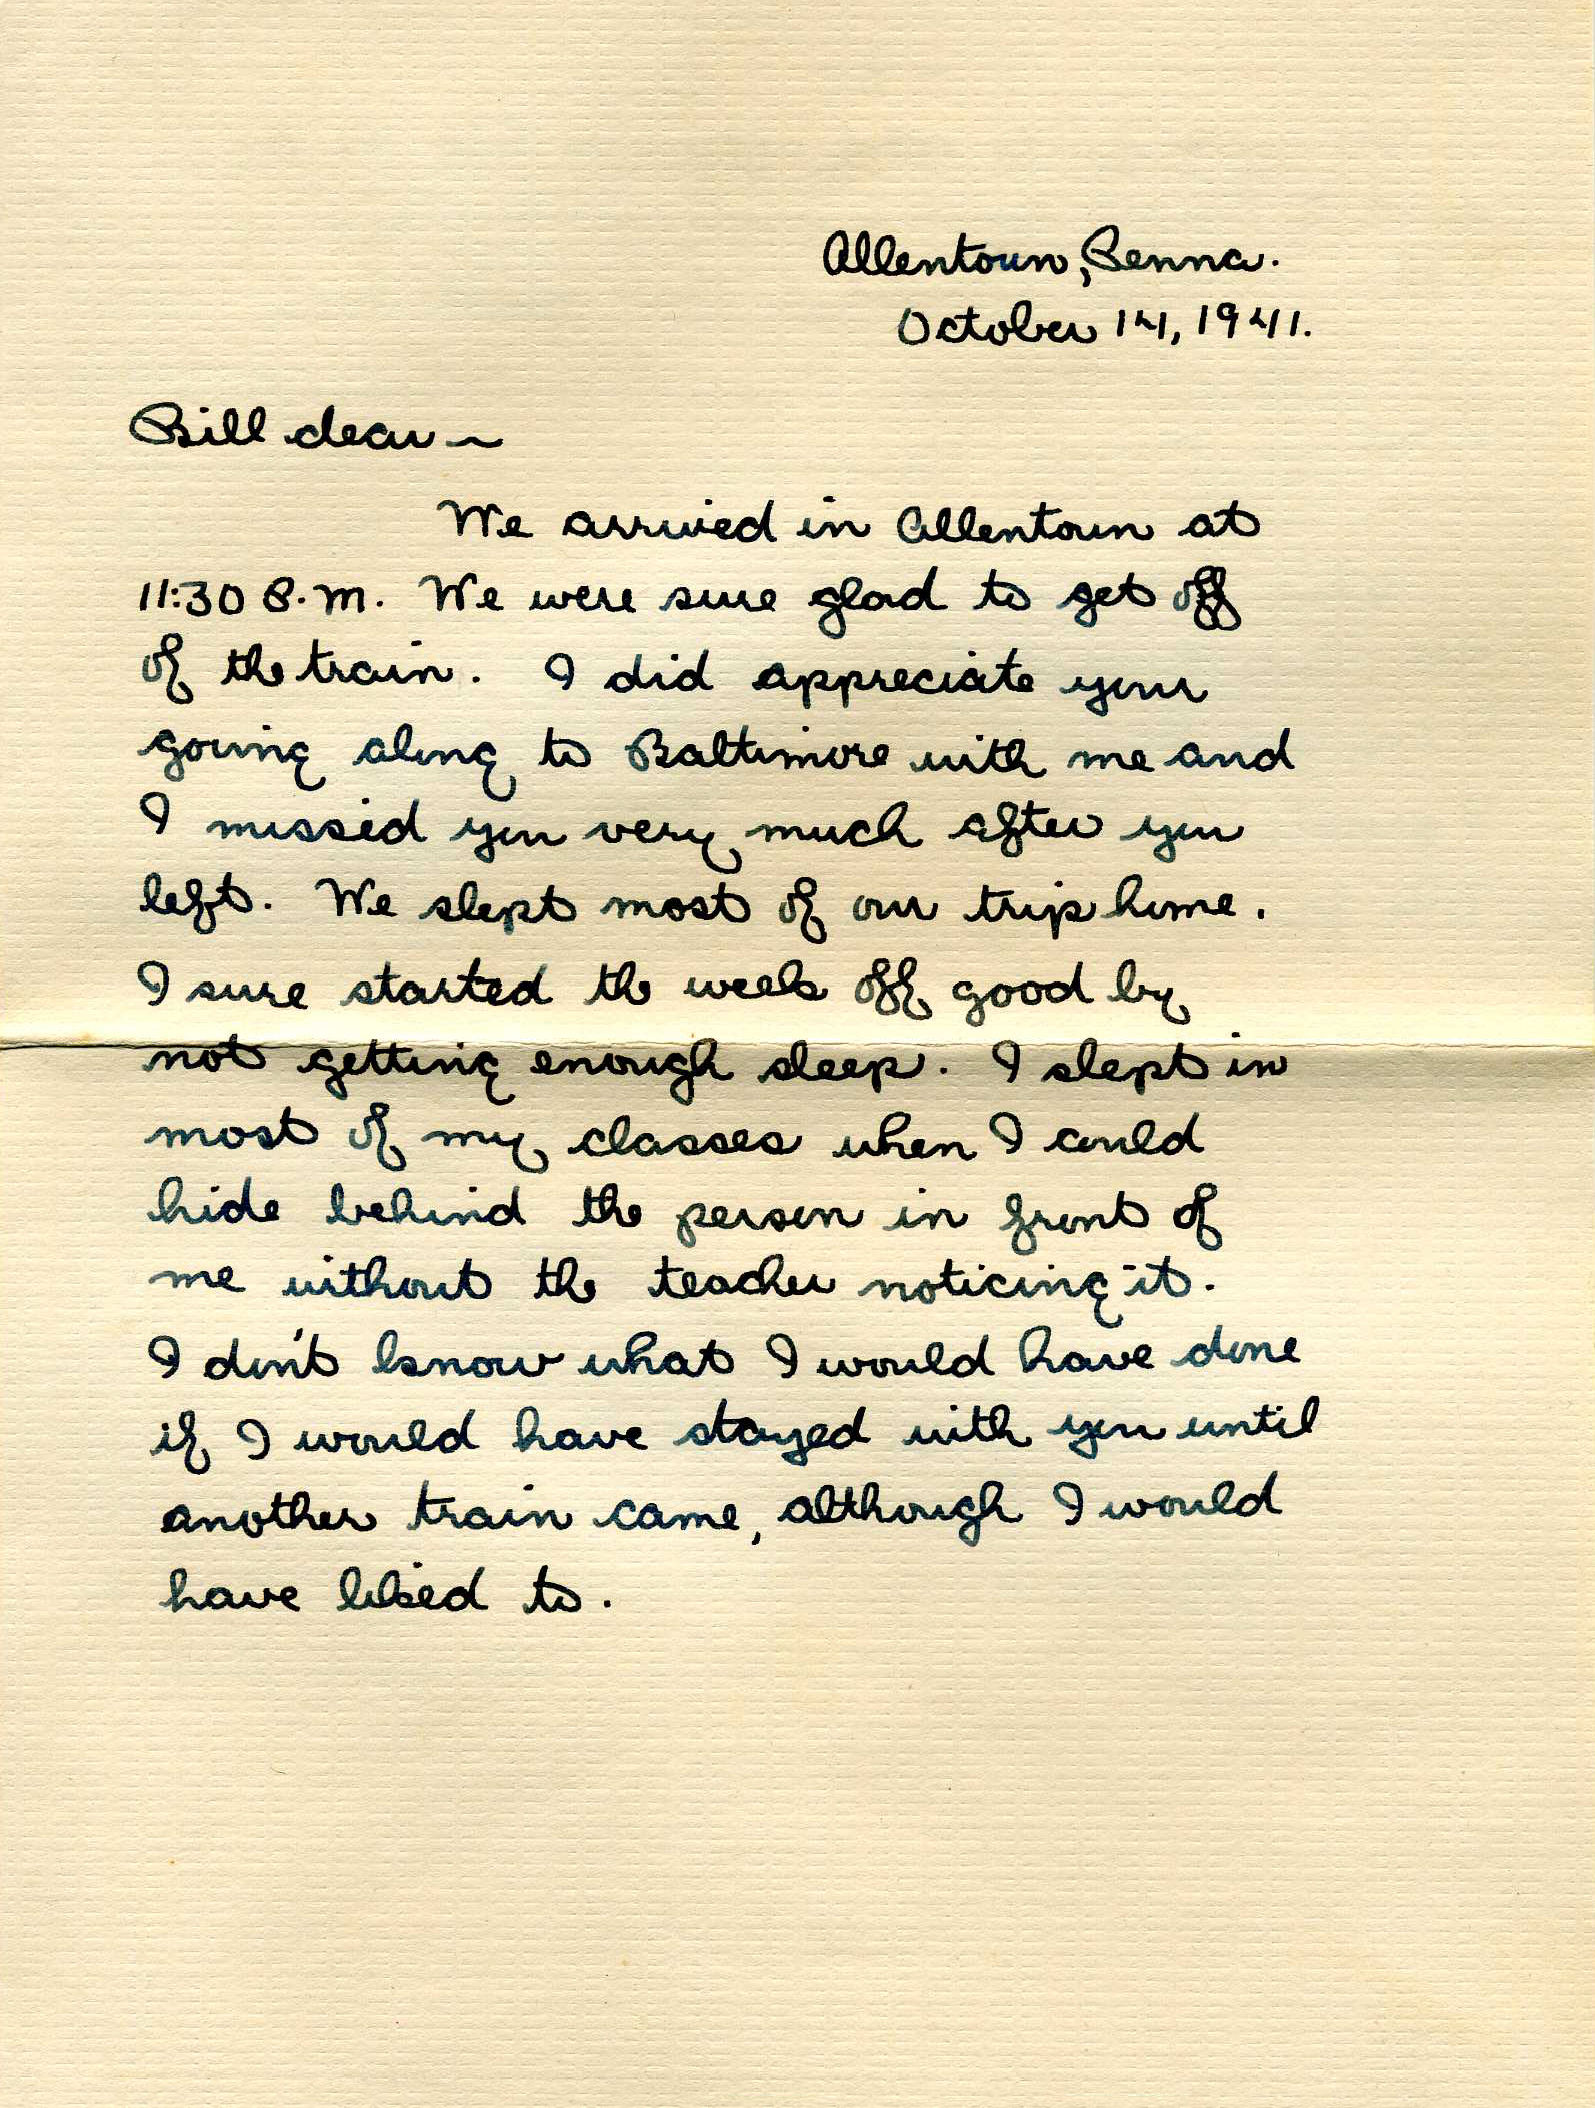 Allentown, Penna.
October 14, 1941.
Bill dear~
We arrived in Allentown at
11:30 P.M. We were sure glad to get off
of the train. I did appreciate your
going along to Baltimore with me and
I missed you very much after you
left. We slept most of our trip home.
I sure started the week off good by
not getting enough sleep. I slept in
most of my classes when I could
hide behind the person in front of
me without the teacher noticing it.
I don't know what I would have done
if I would have stayed with you until
another train came, although I would
have liked to.